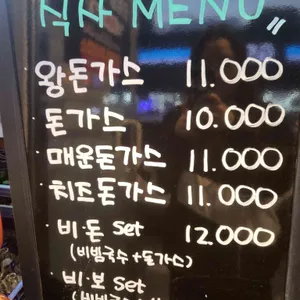 식사 MENU
왕돈가스 11.000
돈가스 10.000
· 매운돈가스 11.000
· 치즈돈가스 11.000
· 비·돈 set 12.000
(비빔국수+돈가스)
· 비·보 set